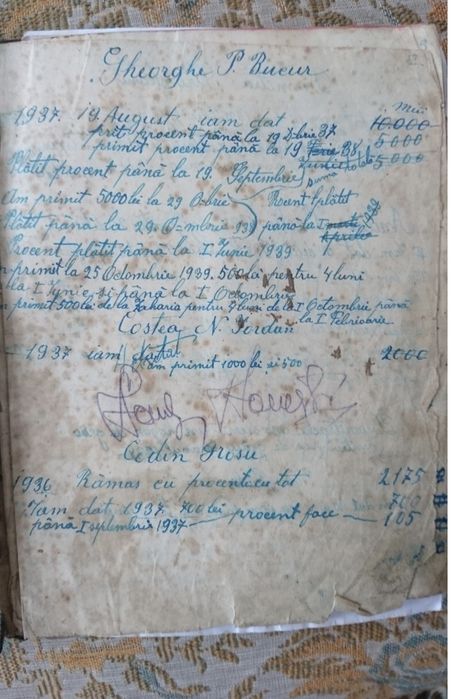 Gheorghe P. Bucur
Mii
1937. 19 August iam dat 10.000
procent până la 19 37 5000
primit procent până la 19 38 5000
Plătit procent până la 19. Septembrie suma totală
Am primit 5000 lei la 29 Octbrie Procent plătit
Plătit până la 29. 939 până la I Aprilie
Procent plătit până la I Iunie 1939
primit la 25 Octombrie 1939. 500 lei pentru 4 luni
la I Iunie și până la I Octombrie
primit 500 lei de la Zaharia pentru 4 luni de la I Octombrie până
la I Februarie
Costea N. Iordan
1937 iam dat 2000
am primit 1000 lei și 500
Codin Grosu
1936 Rămas cu procentcu tot 2175
Iam dat, 1937, 700 lei 700
până I septembrie 1937 — procent face — 105